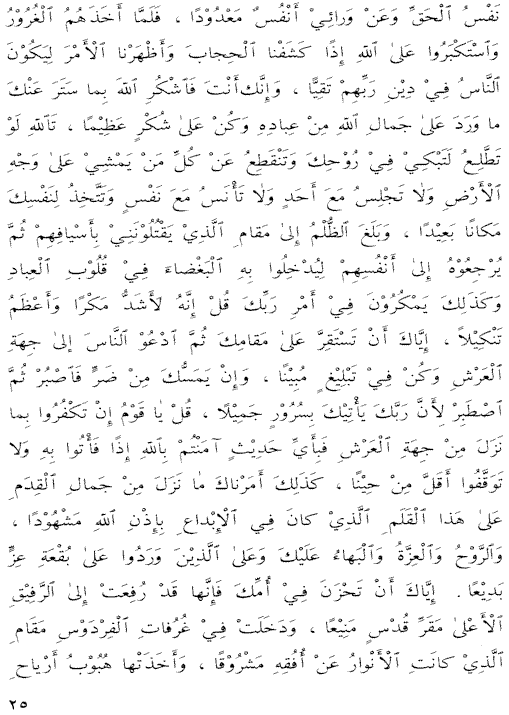 نَفْسُ ٱلْحَقِّ وَعَنْ وَرائِيْ أَنْفُسٌ مَعْدُوْدًا ، فَلَمَّا أَخَذَهُمُ ٱلْغُرُوْرُ
وَٱسْتَكْبَرُوا عَلَىٰ ٱللّهِ إِذًا كَشَفْنا ٱلْحِجابَ وَأَظْهَرْنا ٱلْأَمْرَ لِيَكُوْنَ
ٱلنَّاسُ فِيْ دِيْنِ رَبِّهِمْ تَقِيًّا ، وَإِنَّكَ أَنْتَ فَٱشْكُرِ ٱللّهَ بِما سَتَرَ عَنْكَ
ما وَرَدَ عَلىٰ جَمالِ ٱللّهِ مِنْ عِبادِهِ وَكُنْ عَلىٰ شُكْرٍ عَظِيْمًا ، تَٱللّهِ لَوْ
تَطَّلِعُ لَتَبْكِيْ فِيْ رُوْحِكَ وَتَنْقَطِعُ عَنْ كُلِّ مَنْ يَمْشِيْ عَلىٰ وَجْهِ
ٱلْأَرْضِ وَلا تَجْلِسُ مَعَ أَحَدٍ وَلا تَأْنَسُ مَعَ نَفْسٍ وَتَتَّخِذُ لِنَفْسِكَ
مَكانًا بَعِيْدًا ، وَبَلَغَ ٱلظُّلْمُ إِلىٰ مَقامِ ٱلَّذِيْ يَقْتُلُوْنَنِيْ بِأَسْيافِهِمْ ثُمَّ
يُرْجِعُوْهُ إِلىٰ أَنْفُسِهِمْ لِيُدْخِلُوا بِهِ ٱلْبَغْضاءَ فِيْ قُلُوْبِ ٱلْعِبادِ
وَكَذلِكَ يَمْكُرُوْنَ فِيْ أَمْرِ رَبِّكَ قُلْ إِنَّهُ لَأَشَدُّ مَكْرًا وَأَعْظَمُ
تَنْكِيْلاً ، إِيَّاكَ أَنْ تَسْتَقِرَّ عَلىٰ مَقامِكَ ثُمَّ ٱدْعُوْ ٱلنَّاسَ إلىٰ جِهَةِ
ٱلْعَرْشِ وَكُنْ فِيْ تَبْلِيْغٍ مُبِيْنًا ، وَإِنْ يَمَسُّكَ مِنْ ضَرٍّ فَٱصْبُرْ ثُمَّ
ٱصْطَبِرْ لِأَنَّ رَبَّكَ يَأْتِيْكَ بِسُرُوْرٍ جَمِيْلًا ، قُلْ يٰا قَوْمُ إِنْ تَكْفُرُوا بِما
نَزَلَ مِنْ جِهَةِ ٱلْعَرْشِ فَبِأَيِّ حَدِيْثٍ آمَنْتُمْ بِٱللّهِ إِذًا فَأْتُوا بِهِ وَلا
تَوَقَّفُوا أَقَلَّ مِنْ حِيْنًا ، كَذلِكَ أَمَرْناكَ مٰا نَزَلَ مِنْ جَمالِ ٱلْقِدَمِ
عَلىٰ هَذا ٱلْقَلَمِ ٱلَّذِيْ كانَ فِي ٱلْإِبْداعِ بِإِذْنِ ٱللّهِ مَشْهُوْدًا ،
وَٱلرَّوْحُ وَٱلْعِزَّةُ وَٱلْبَهاءُ عَلَيْكَ وَعَلىٰ ٱلَّذِيْنَ وَرَدُوا عَلىٰ بُقْعَةِ عِزٍّ
بَدِيْعًا . إِيَّاكَ أَنْ تَحْزَنَ فِيْ أُمِّكَ فَإِنَّها قَدْ رُفِعَتْ إِلىٰ ٱلرَّفِيْقِ
ٱلْأَعْلىٰ مَقَرِّ قُدْسٍ مَنِيْعًا ، وَدَخَلَتْ فِيْ غُرُفاتِ ٱلْفِرْدَوْسِ مَقامِ
ٱلَّذِيْ كانَتِ ٱلْأَنْوارُ عَنْ أُفُقِهِ مَشْرُوْقًا ، وَأَخَذَتْها هُبُوْبُ أَرْياحِ
٢٥